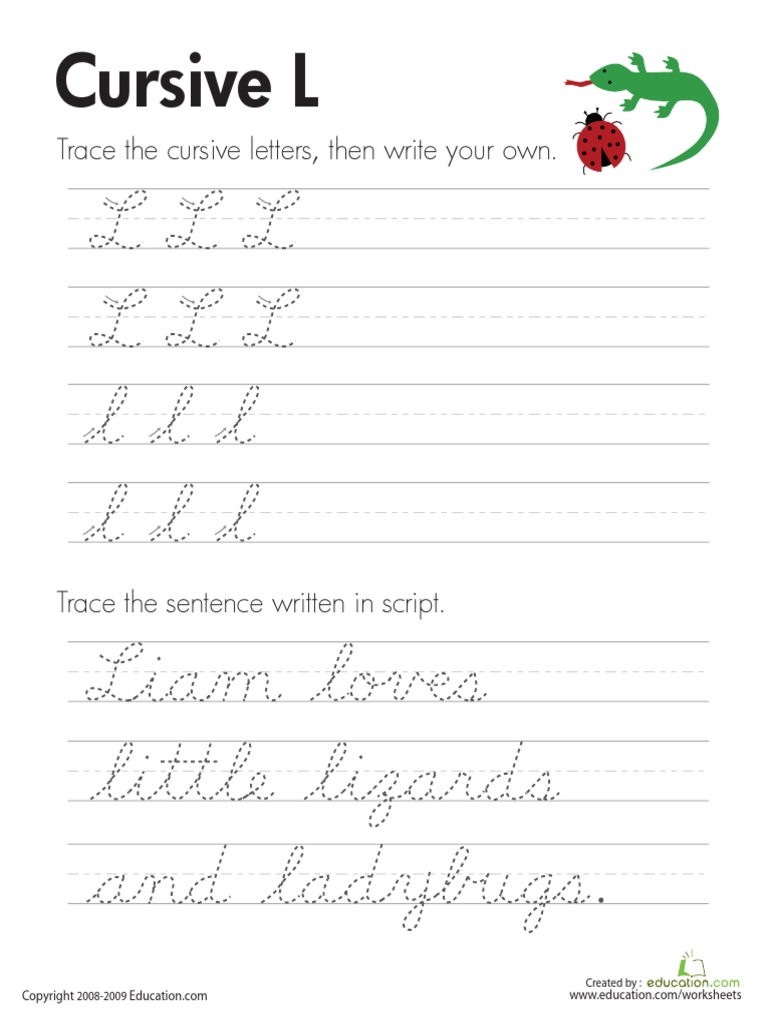 Cursive L
Trace the cursive letters, then write your own.
L L L
L L L
l l l
l l l
Trace the sentence written in script.
Liam loves
little lizards
and ladybugs.
Created by : education.com
Copyright 2008-2009 Education.com
www.education.com/worksheets